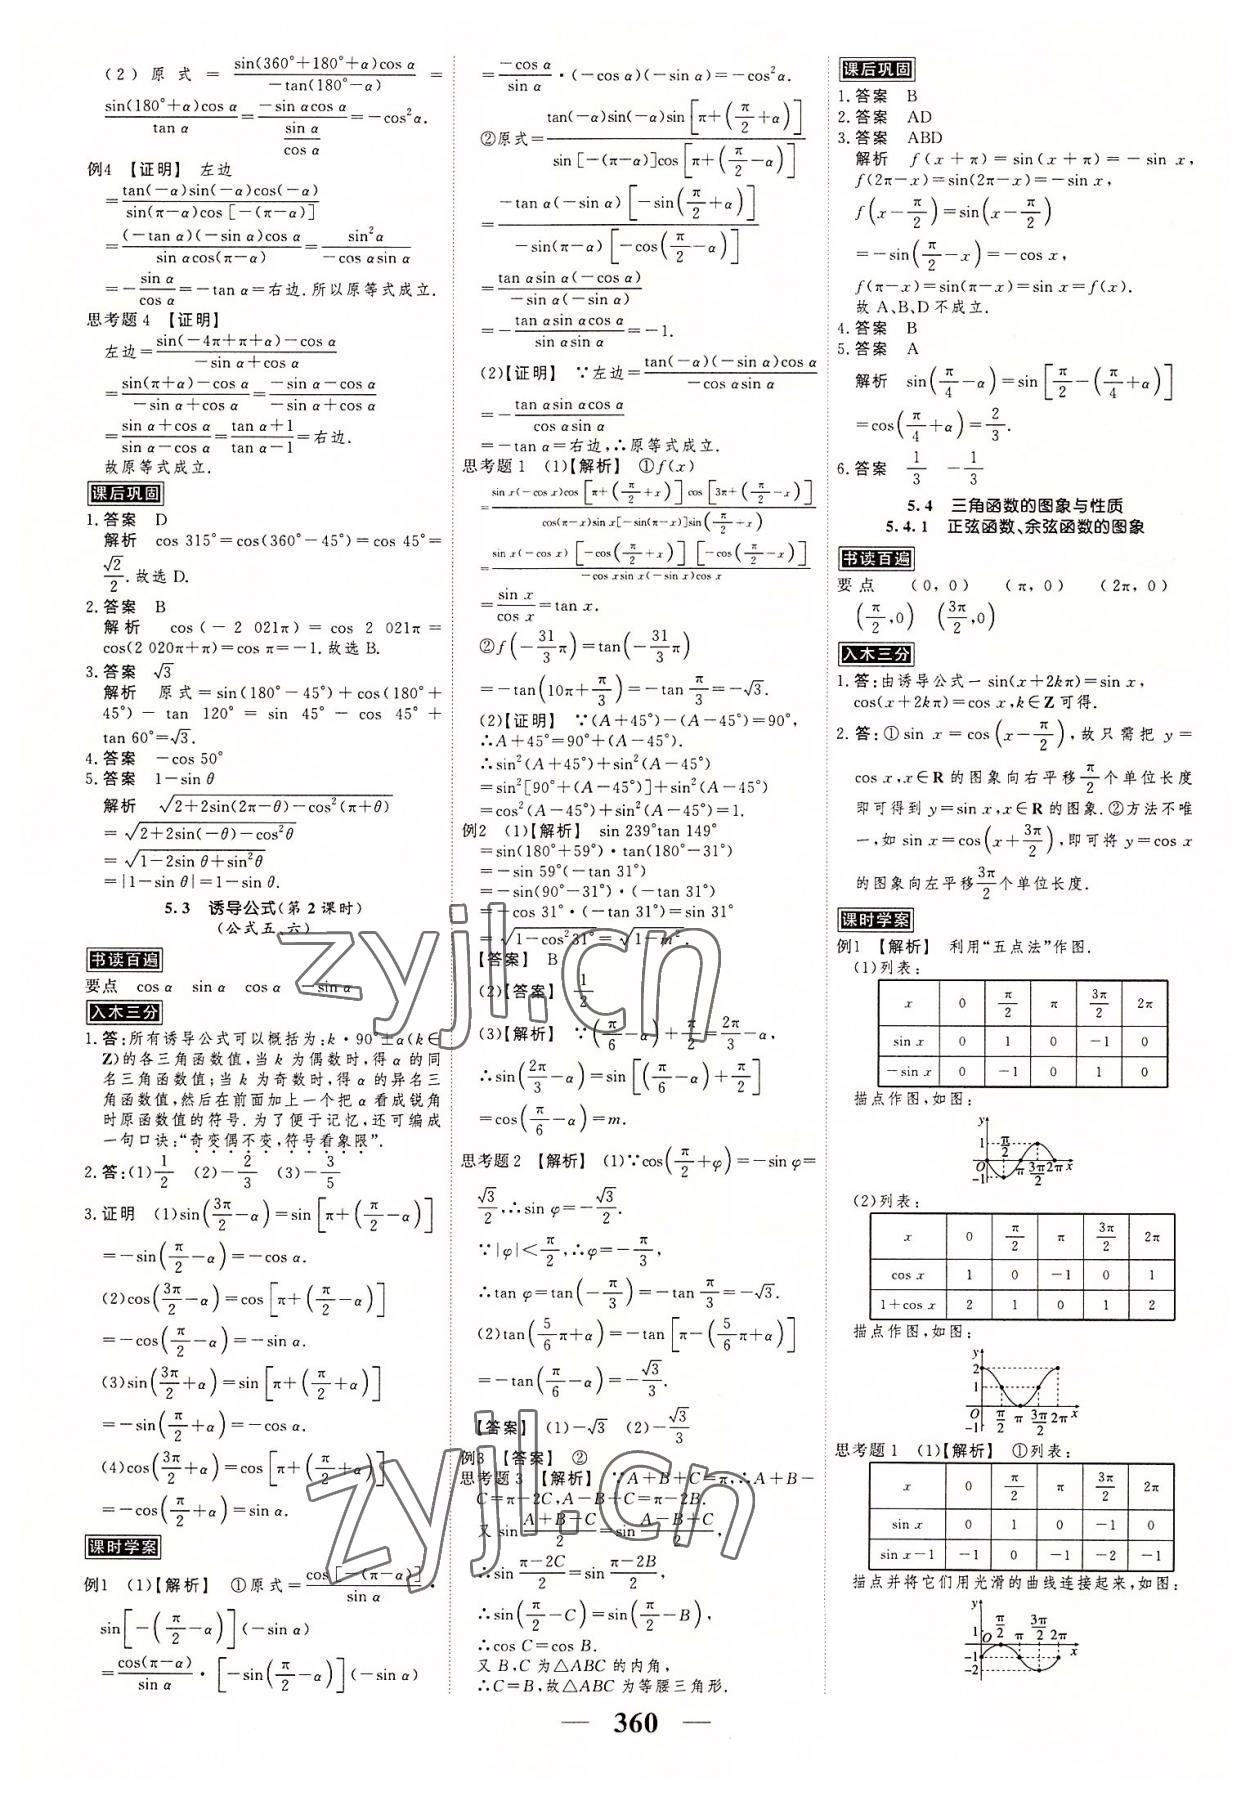 (2)原式=\frac{sin(360°+180°+α)cos α}{-tan(180°-α)}=
\frac{sin(180°+α)cos α}{tan α}=\frac{-sin αcos α}{\frac{sin α}{cos α}}=-cos²α.
例4 【证明】 左边
=\frac{tan(-α)sin(-α)cos(-α)}{sin(π-α)cos[-(π-α)]}
=\frac{(-tan α)(-sin α)cos α}{sin αcos(π-α)}=\frac{sin²α}{-cos αsin α}
=-\frac{sin α}{cos α}=-tan α=右边.所以原等式成立.
思考题4 【证明】
左边=\frac{sin(-4π+π+α)-cos α}{-sin α+cos α}
=\frac{sin(π+α)-cos α}{-sin α+cos α}=\frac{-sin α-cos α}{-sin α+cos α}
=\frac{sin α+cos α}{sin α-cos α}=\frac{tan α+1}{tan α-1}=右边.
故原等式成立.
课后巩固
1.答案 D
解析 cos 315°=cos(360°-45°)=cos 45°=
\frac{√2}{2}.故选 D.
2.答案 B
解析 cos(-2 021π)=cos 2 021π=
cos(2 020π+π)=cos π=-1.故选 B.
3.答案 √3
解析 原式=sin(180°-45°)+cos(180°+
45°)-tan 120°=sin 45°-cos 45°+
tan 60°=√3.
4.答案 -cos 50°
5.答案 1-sin θ
解析 √(2+2sin(2π-θ)-cos²(π+θ))
=√(2+2sin(-θ)-cos²θ)
=√(1-2sin θ+sin²θ)
=|1-sin θ|=1-sin θ.
5.3 诱导公式(第2课时)
(公式五、六)
书读百遍
要点 cos α sin α cos α -sin α
入木三分
1.答:所有诱导公式可以概括为:k·90°±α(k∈
Z)的各三角函数值,当 k 为偶数时,得 α 的同
名三角函数值;当 k 为奇数时,得 α 的异名三
角函数值,然后在前面加上一个把 α 看成锐角
时原函数值的符号.为了便于记忆,还可编成
一句口诀:“奇变偶不变,符号看象限”.
2.答:(1)\frac{1}{2} (2)-\frac{2}{3} (3)-\frac{3}{5}
3.证明 (1)sin(\frac{3π}{2}-α)=sin[π+(\frac{π}{2}-α)]
=-sin(\frac{π}{2}-α)=-cos α.
(2)cos(\frac{3π}{2}-α)=cos[π+(\frac{π}{2}-α)]
=-cos(\frac{π}{2}-α)=-sin α.
(3)sin(\frac{3π}{2}+α)=sin[π+(\frac{π}{2}+α)]
=-sin(\frac{π}{2}+α)=-cos α.
(4)cos(\frac{3π}{2}+α)=cos[π+(\frac{π}{2}+α)]
=-cos(\frac{π}{2}+α)=sin α.
课时学案
例1 (1)【解析】 ①原式=\frac{cos[-(π-α)]}{sin α}·
sin[-(\frac{π}{2}-α)](-sin α)
=\frac{cos(π-α)}{sin α}·[-sin(\frac{π}{2}-α)](-sin α)
=\frac{-cos α}{sin α}·(-cos α)(-sin α)=-cos²α.
②原式=\frac{tan(-α)sin(-α)sin[π+(\frac{π}{2}+α)]}{sin[-(π-α)]cos[π+(\frac{π}{2}-α)]}
=\frac{-tan α(-sin α)[-sin(\frac{π}{2}+α)]}{-sin(π-α)[-cos(\frac{π}{2}-α)]}
=\frac{tan αsin α(-cos α)}{-sin α(-sin α)}
=-\frac{tan αsin αcos α}{sin αsin α}=-1.
(2)【证明】 ∵左边=\frac{tan(-α)(-sin α)cos α}{-cos αsin α}
=-\frac{tan αsin αcos α}{cos αsin α}
=-tan α=右边,∴原等式成立.
思考题1 (1)【解析】 ①f(x)
=\frac{sin x(-cos x)cos[π+(\frac{π}{2}+x)]cos[3π+(\frac{π}{2}-x)]}{cos(π-x)sin x[-sin(π-x)]sin(\frac{π}{2}-x)}
=\frac{sin x(-cos x)[-cos(\frac{π}{2}+x)][-cos(\frac{π}{2}-x)]}{-cos xsin x(-sin x)cos x}
=\frac{sin x}{cos x}=tan x.
②f(-\frac{31}{3}π)=tan(-\frac{31}{3}π)
=-tan(10π+\frac{π}{3})=-tan\frac{π}{3}=-√3.
(2)【证明】 ∵(A+45°)-(A-45°)=90°,
∴A+45°=90°+(A-45°).
∴sin²(A+45°)+sin²(A-45°)
=sin²[90°+(A-45°)]+sin²(A-45°)
=cos²(A-45°)+sin²(A-45°)=1.
例2 (1)【解析】 sin 239°tan 149°
=sin(180°+59°)·tan(180°-31°)
=-sin 59°(-tan 31°)
=-sin(90°-31°)·(-tan 31°)
=-cos 31°·(-tan 31°)=sin 31°
=√(1-cos²31°)=√(1-m²).
【答案】 B
(2)【答案】 \frac{1}{2}
(3)【解析】 ∵(\frac{π}{6}-α)+\frac{π}{2}=\frac{2π}{3}-α,
∴sin(\frac{2π}{3}-α)=sin[(\frac{π}{6}-α)+\frac{π}{2}]
=cos(\frac{π}{6}-α)=m.
思考题2 【解析】 (1)∵cos(\frac{π}{2}+φ)=-sin φ=
\frac{√3}{2},∴sin φ=-\frac{√3}{2}.
∵|φ|<\frac{π}{2},∴φ=-\frac{π}{3},
∴tan φ=tan(-\frac{π}{3})=-tan\frac{π}{3}=-√3.
(2)tan(\frac{5}{6}π+α)=-tan[π-(\frac{5}{6}π+α)]
=-tan(\frac{π}{6}-α)=-\frac{√3}{3}.
【答案】 (1)-√3 (2)-\frac{√3}{3}
例3 【答案】 ②
思考题3 【解析】 ∵A+B+C=π,∴A+B-
C=π-2C,A-B+C=π-2B.
又 sin\frac{A+B-C}{2}=sin\frac{A-B+C}{2},
∴sin\frac{π-2C}{2}=sin\frac{π-2B}{2},
∴sin(\frac{π}{2}-C)=sin(\frac{π}{2}-B),
∴cos C=cos B.
又 B,C 为△ABC 的内角,
∴C=B,故△ABC 为等腰三角形.
课后巩固
1.答案 B
2.答案 AD
3.答案 ABD
解析 f(x+π)=sin(x+π)=-sin x,
f(2π-x)=sin(2π-x)=-sin x,
f(x-\frac{π}{2})=sin(x-\frac{π}{2})
=-sin(\frac{π}{2}-x)=-cos x,
f(π-x)=sin(π-x)=sin x=f(x).
故 A、B、D 不成立.
4.答案 B
5.答案 A
解析 sin(\frac{π}{4}-α)=sin[\frac{π}{2}-(\frac{π}{4}+α)]
=cos(\frac{π}{4}+α)=\frac{2}{3}.
6.答案 \frac{1}{3} -\frac{1}{3}
5.4 三角函数的图象与性质
5.4.1 正弦函数、余弦函数的图象
书读百遍
要点 (0,0) (π,0) (2π,0)
(\frac{π}{2},0) (\frac{3π}{2},0)
入木三分
1.答:由诱导公式一 sin(x+2kπ)=sin x,
cos(x+2kπ)=cos x,k∈Z 可得.
2.答:①sin x=cos(x-\frac{π}{2}),故只需把 y=
cos x,x∈R 的图象向右平移\frac{π}{2}个单位长度
即可得到 y=sin x,x∈R 的图象.②方法不唯
一,如 sin x=cos(x+\frac{3π}{2}),即可将 y=cos x
的图象向左平移\frac{3π}{2}个单位长度.
课时学案
例1 【解析】 利用“五点法”作图.
(1)列表:
x 0 \frac{π}{2} π \frac{3π}{2} 2π
sin x 0 1 0 -1 0
-sin x 0 -1 0 1 0
描点作图,如图:
y 1 O -1 \frac{π}{2} π \frac{3π}{2} 2π x
(2)列表:
x 0 \frac{π}{2} π \frac{3π}{2} 2π
cos x 1 0 -1 0 1
1+cos x 2 1 0 1 2
描点作图,如图:
y 2 1 O \frac{π}{2} π \frac{3π}{2} 2π x
思考题1 (1)【解析】 ①列表:
x 0 \frac{π}{2} π \frac{3π}{2} 2π
sin x 0 1 0 -1 0
sin x-1 -1 0 -1 -2 -1
描点并将它们用光滑的曲线连接起来,如图:
y 1 O -1 -2 \frac{π}{2} π \frac{3π}{2} 2π x
360
zyjl.cn
zyjl.cn